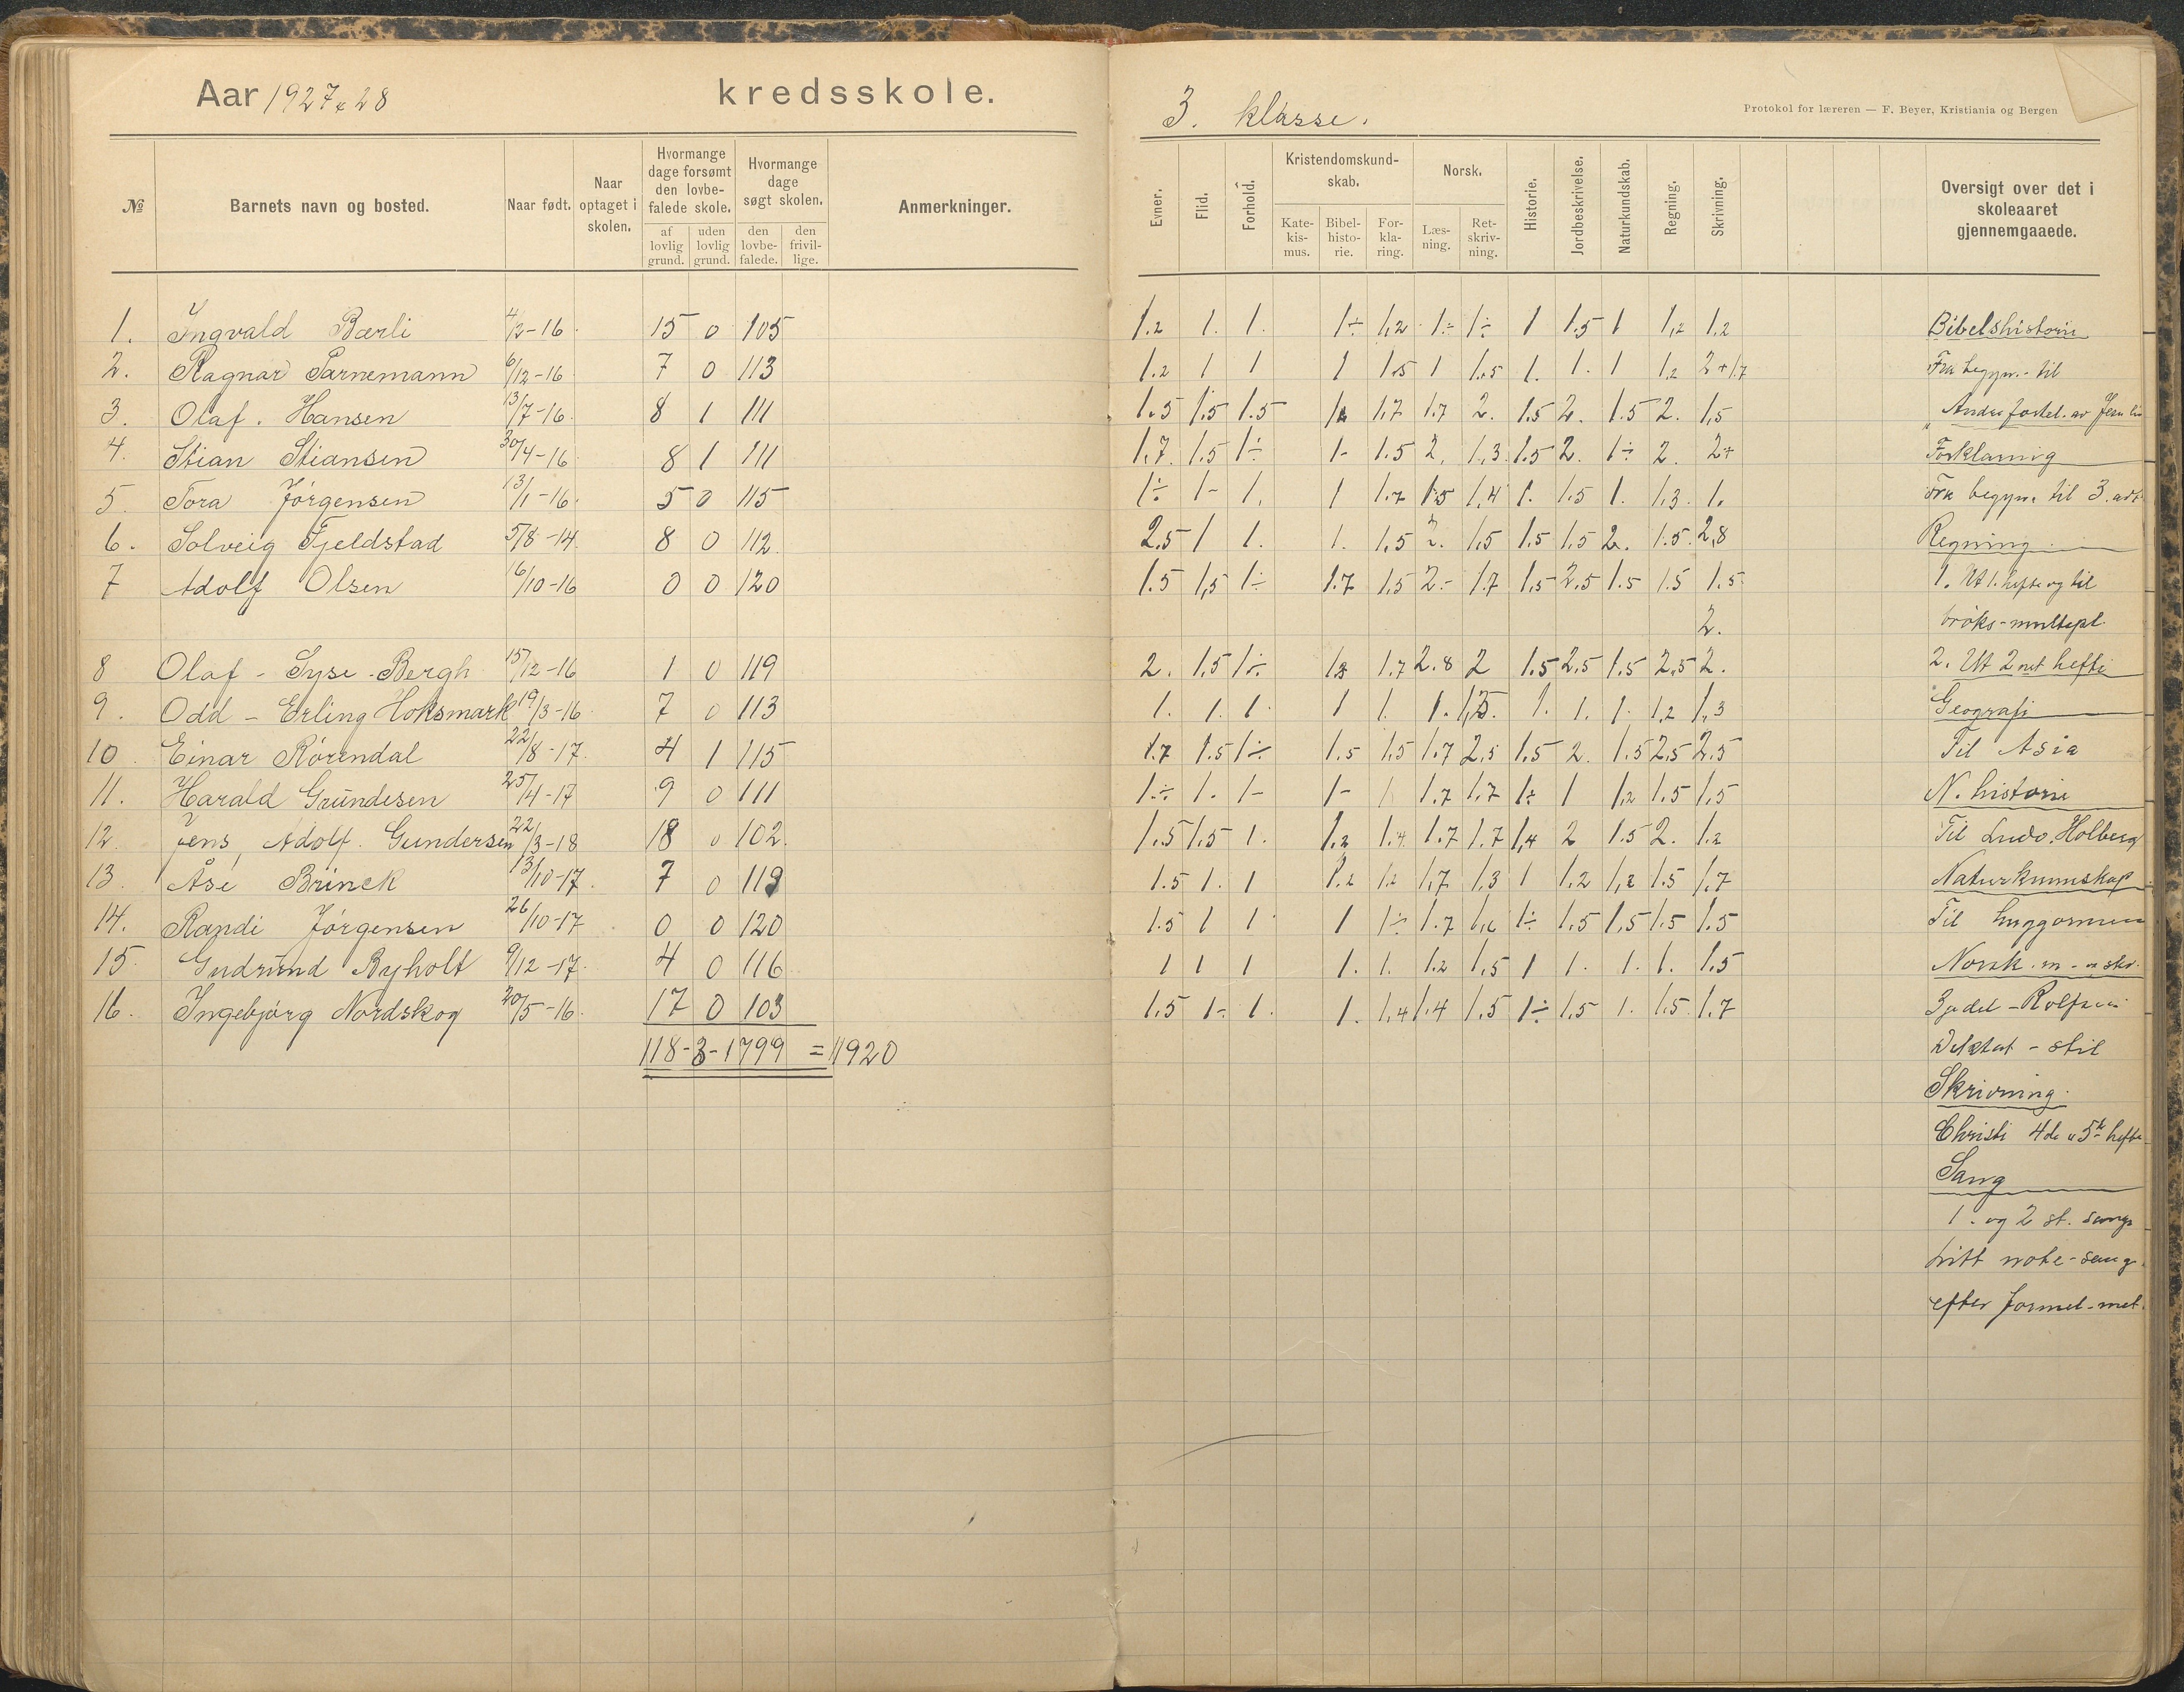 Aar 1927 & 28 kredsskole.
3. klasse.
Protokol for læreren — F. Beyer, Kristiania og Bergen
№ Barnets navn og bosted. Naar født. Naar optaget i skolen. Hvormange dage forsømt den lovbefalede skole. af lovlig grund. uden lovlig grund. Hvormange dage søgt skolen. den lovbefalede. den frivillige. Anmerkninger.
Evner. Flid. Forhold. Kristendomskundskab. Katekismus. Bibelhistorie. Forklaring. Norsk. Læsning. Retskrivning. Historie. Jordbeskrivelse. Naturkundskab. Regning. Skrivning. Oversigt over det i skoleaaret gjennemgaaede.
1. Ingvald Bærli 4/2-16 15 0 105 1.2 1. 1. 1÷ 1,2 1÷ 1÷ 1 1.5 1 1,2 1.2 Bibelshistorie
2. Ragnar Tarnemann 6/12-16 7 0 113 1.2 1 1 1 1.5 1 1.5 1. 1. 1 1,2 2+1.7 Fra begyn.- til
3. Olaf. Hansen 13/7-16 8 1 111 1.5 1.5 1.5 1.7 1.7 2. 1.5 2. 1.5 2. 1,5
4. Stian Stiansen 30/4-16 8 1 111 1.7 1.5 1÷ 1- 1.5 2. 1.3 1.5 2. 1÷ 2. 2+ Forklaring
5. Tora Jørgensen 13/1-16 5 0 115 1÷ 1- 1. 1 1.7 1.5 1,4 1. 1.5 1. 1,3. 1. Fra begyn. til 3. art.
6. Solveig Fjeldstad 5/8-14 8 0 112 2.5 1 1. 1. 1.5 2. 1.5 1.5 1.5 2. 1.5. 2,8 Regning
7 Adolf Olsen 16/10-16 0 0 120 1.5 1,5 1÷ 1.7 1.5 2.- 1.7 1.5 2.5 1.5 1.5 1.5 1. Ut 1. hefte og til
2. brøks-multipl.
8 Olaf - Syse-Bergh 15/12-16 1 0 119 2. 1.5 1÷ 1.7 2.8 2 1.5 2.5 1.5 2.5 2. 2. Ut 2net hefte
9. Odd - Erling Hoksmark 19/3-16 7 0 113 1. 1. 1. 1 1. 1. 1,5. 1. 1. 1. 1,2 1,3 Geografi
10. Einar Rørendal 22/8-17 4 1 115 1.7 1.5 1÷ 1.5 1.5 1.7 2.5 1.5 2. 1.5 2.5 2.5 Til Asia
11. Harald Grundesen 25/4-17 9 0 111 1÷ 1. 1- 1- 1 1.7 1.7 1÷ 1 1,2 1.5 1.5 N. historie
12. Jens, Adolf. Gundersen 22/3-18 18 0 102. 1.5 1.5 1. 1.2 1.4 1.7 1.7 1,4 2 1.5 2. 1.2 Til Ludv. Holberg
13. Åse Brinck 13/10-17 7 0 113 1.5 1. 1 1.2 1.2 1,7 1,3 1 1.2 1,2 1.5 1.7 Naturkunnskap
14. Randi Jørgensen 26/10-17 0 0 120 1.5 1 1 1 1÷ 1.7 1,6 1÷ 1.5 1.5 1.5 1.5 Til huggormen
15. Gudrund Ryholt 9/12-17 4 0 116 1 1 1 1. 1. 1.2 1.5 1 1. 1. 1. 1.5 Norsk. m- skr.
16. Ingebjørg Nordskog 20/5-16 17 0 103 1.5 1- 1. 1. 1.4 1.4 1.5 1÷ 1.5 1. 1.5. 1.7 3je del - Rolfsen
118-3-1799 = 1920 Diktat - stil
Skrivning.
Christi 4de & 5te hefte
Sang
1. og 2 st. sange
litt note-sang
efter formel-met.